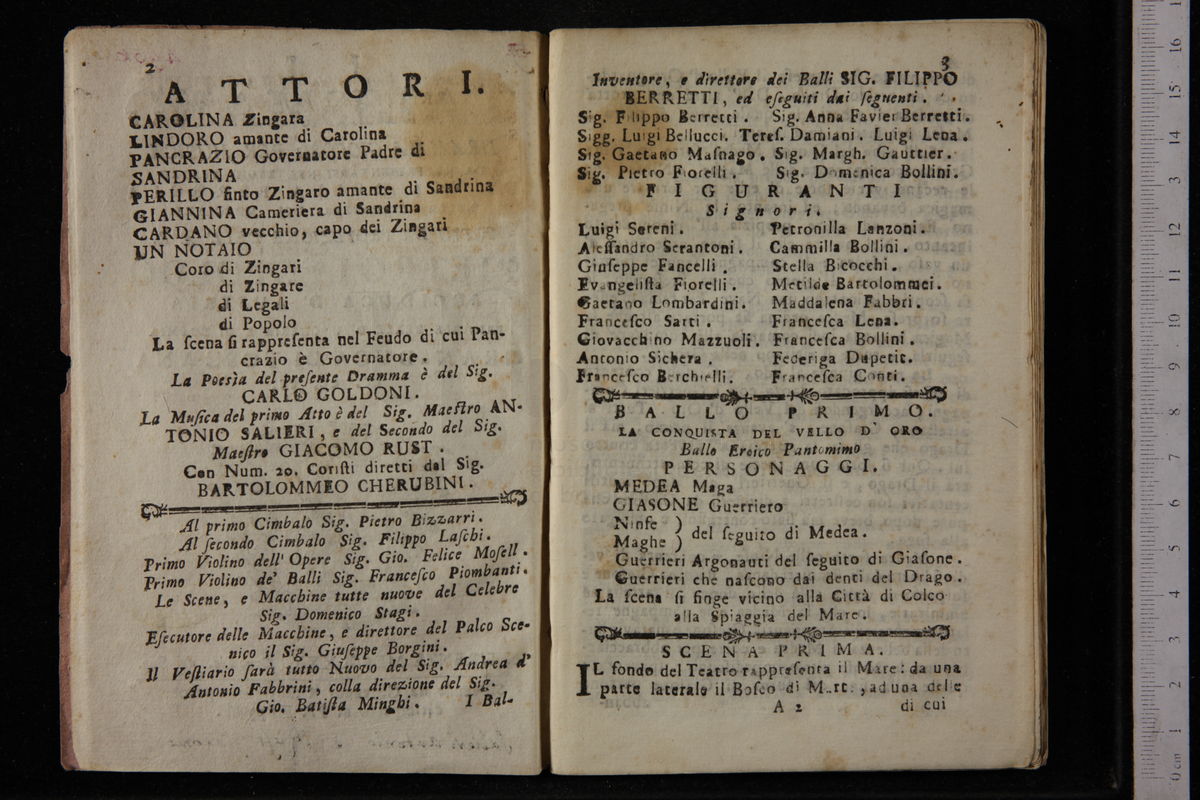 2
ATTORI.
CAROLINA Zingara
LINDORO amante di Carolina
PANCRAZIO Governatore Padre di
SANDRINA
PERILLO finto Zingaro amante di Sandrina
GIANNINA Cameriera di Sandrina
CARDANO vecchio, capo dei Zingari
UN NOTAIO
Coro di Zingari
di Zingare
di Legali
di Popolo
La ſcena ſi rappreſenta nel Feudo di cui Pan-
crazio è Governatore.
La Poesìa del preſente Dramma è del Sig.
CARLO GOLDONI.
La Muſica del primo Atto è del Sig. Maeſtro AN-
TONIO SALIERI, e del Secondo del Sig.
Maeſtro GIACOMO RUST.
Con Num. 20. Coriſti diretti dal Sig.
BARTOLOMMEO CHERUBINI.
Al primo Cimbalo Sig. Pietro Bizzarri.
Al ſecondo Cimbalo Sig. Filippo Laſchi.
Primo Violino dell' Opere Sig. Gio. Felice Moſell.
Primo Violino de' Balli Sig. Franceſco Piombanti.
Le Scene, e Macchine tutte nuove del Celebre
Sig. Domenico Stagi.
Eſecutore delle Macchine, e direttore del Palco Sce-
nico il Sig. Giuſeppe Borgini.
Il Veſtiario ſarà tutto Nuovo del Sig. Andrea d'
Antonio Fabbrini, colla direzione del Sig.
Gio. Batiſta Minghi.
I Bal-
3
Inventore, e direttore dei Balli SIG. FILIPPO
BERRETTI, ed eſeguiti dai ſeguenti.
Sig. Filippo Berretti. Sig. Anna Favier Berretti.
Sigg. Luigi Bellucci. Tereſ. Damiani. Luigi Lena.
Sig. Gaetano Maſnago. Sig. Margh. Gauttier.
Sig. Pietro Fiorelli. Sig. Domenica Bollini.
FIGURANTI
Signori.
Luigi Sereni. Petronilla Lanzoni.
Aleſſandro Serantoni. Cammilla Bollini.
Giuſeppe Fancelli. Stella Bicocchi.
Evangeliſta Fiorelli. Metilde Bartolommei.
Gaetano Lombardini. Maddalena Fabbri.
Franceſco Sarti. Franceſca Lena.
Giovacchino Mazzuoli. Franceſca Bollini.
Antonio Sichera. Federiga Dupetit.
Franceſco Berchielli. Franceſca Conti.
BALLO PRIMO.
LA CONQUISTA DEL VELLO D' ORO
Ballo Eroico Pantomimo
PERSONAGGI.
MEDEA Maga
GIASONE Guerriero
Ninfe )
Maghe ) del ſeguito di Medea.
Guerrieri Argonauti del ſeguito di Giaſone.
Guerrieri che naſcono dai denti del Drago.
La ſcena ſi finge vicino alla Città di Colco
alla Spiaggia del Mare.
SCENA PRIMA.
IL fondo del Teatro rappreſenta il Mare: da una
parte laterale il Boſco di Marte, ad una delle
A 2 di cui
0 cm 1 2 3 4 5 6 7 8 9 10 11 12 13 14 15 16